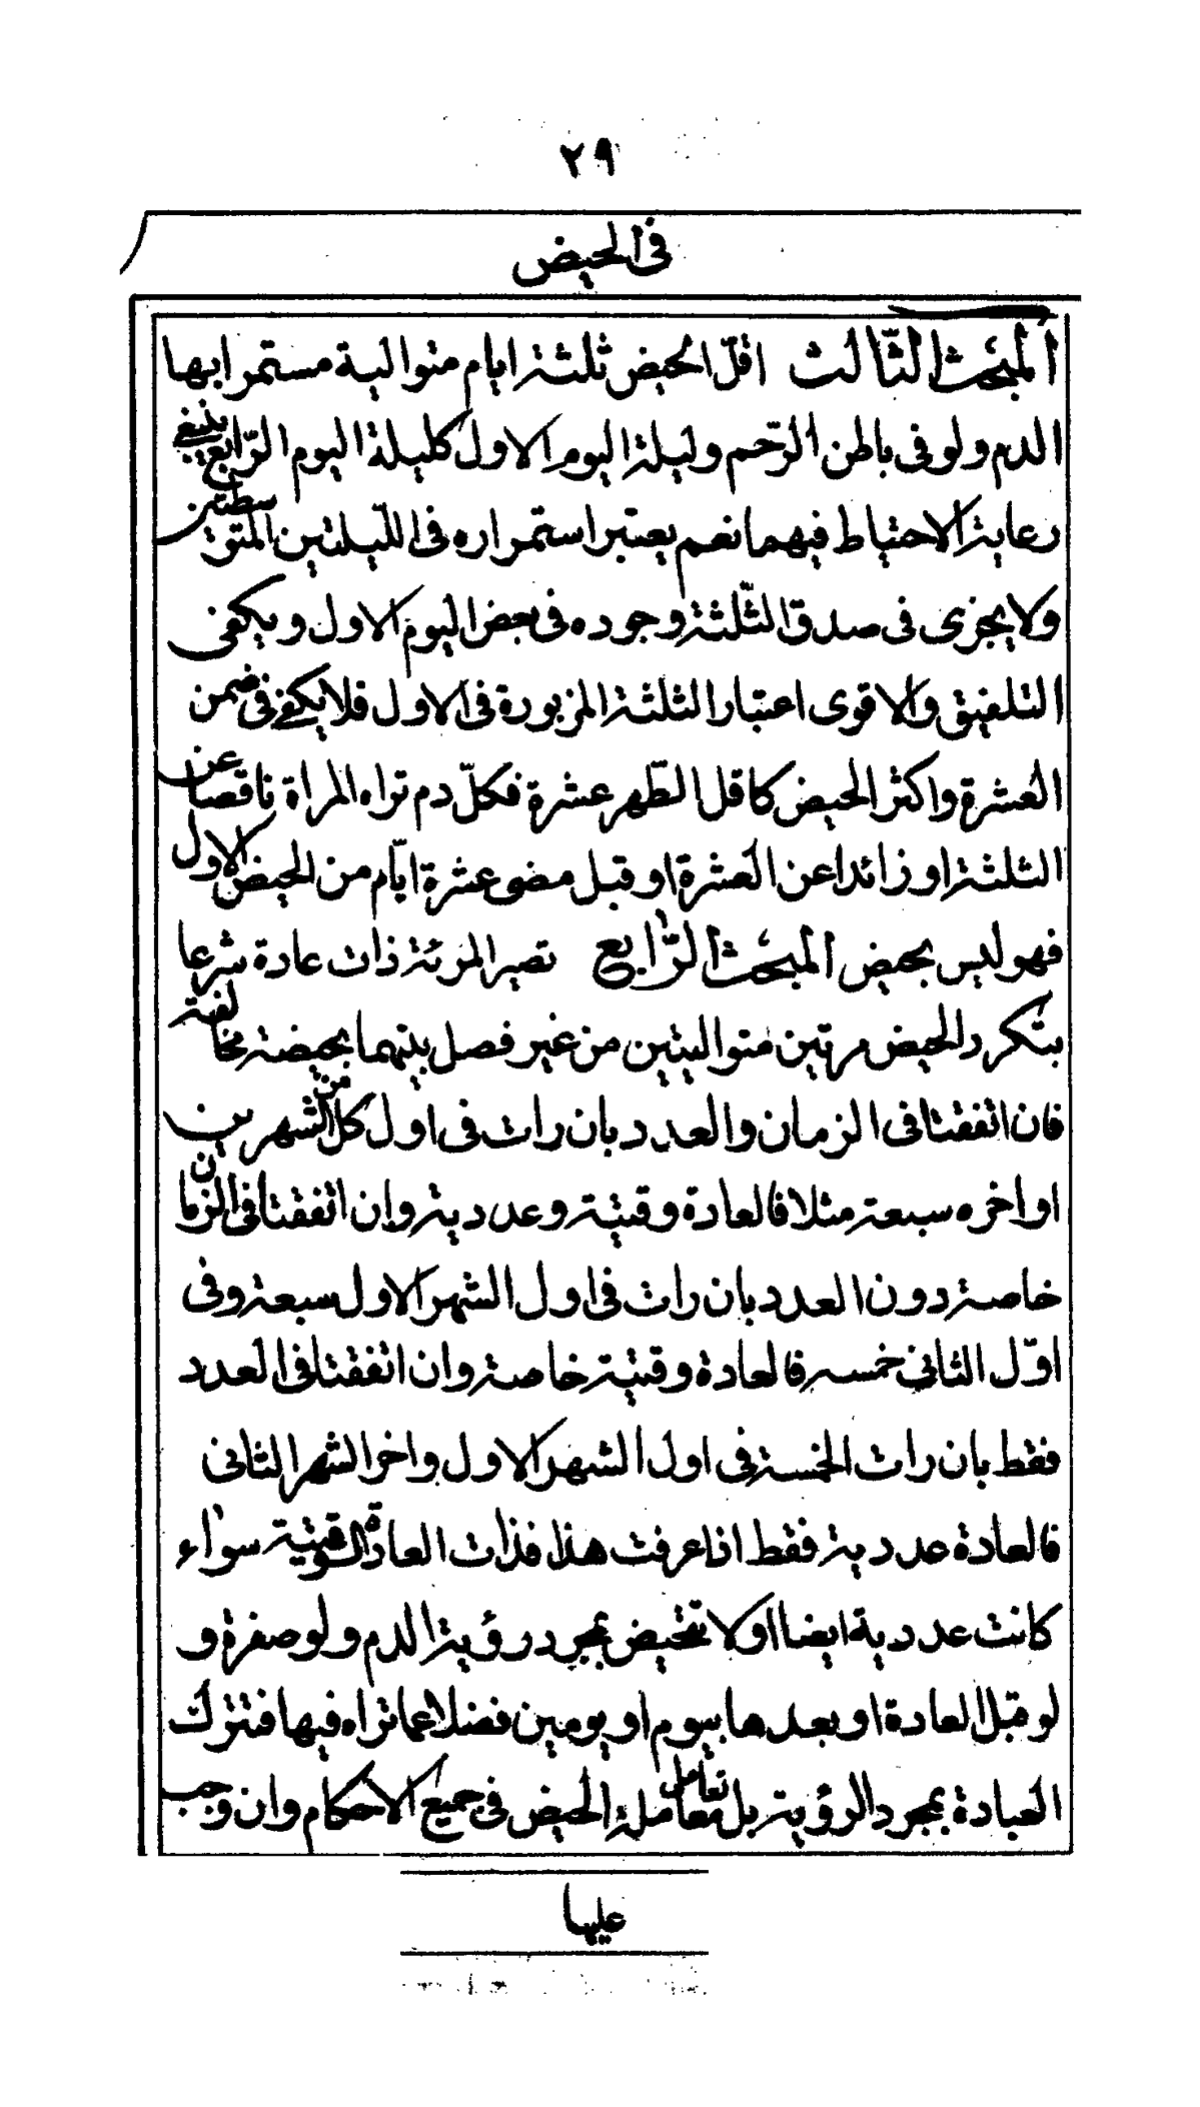 ٢٩
فى الحيض
المبحث الثّالث اقلّ الحيض ثلثة ايام متوالية مستمرا بها
الدم ولو فى باطن الرّحم وليلة اليوم الاول كليلة اليوم الرّابع ينبغى
رعاية الاحتياط فيهما نعم يعتبر استمراره فى اللّيلتين المتوسطتين
ولا يجزى فى صدق الثّلثة وجوده فى بعض اليوم الاول ويكفى
التلفيق والاقوى اعتبار الثلثة المزبورة فى الاول فلا يكفى فى ضمن
العشرة واكثر الحيض كاقل الطّهر عشرة فكلّ دم تراه المراة ناقصا عن
الثلثة او زائدا عن العشرة او قبل مضى عشرة ايّام من الحيض الاول
فهو ليس بحيض المبحث الرّابع تصير المرئة ذات عادة شرعا
بتكرر الحيض مرتين متواليتين من غير فصل بينهما بحيضة مخالفة
فان اتفقتا فى الزمان والعدد بان رات فى اول كل من الشهرين
او اخره سبعة مثلا فالعادة وقتيّة وعددية وان اتفقتا فى الزمان
خاصة دون العدد بان رات فى اول الشهر الاول سبعة وفى
اوّل الثانى خمسه فالعادة وقتيّة خاصة وان اتفقتا فى العدد
فقط بان رات الخمسة فى اول الشهر الاول واخر الشهر الثانى
فالعادة عددية فقط اذا عرفت هذا فذات العادة الوقتيّة سواء
كانت عددية ايضا او لا تتحيض بمجرد رؤية الدم ولو صفرة و
لو قبل العادة او بعدها بيوم او يومين فضلا عما تراه فيها فتترك
العبادة بمجرد الرؤية بل تعامل معاملة الحيض فى جميع الاحكام وان وجب
عليها